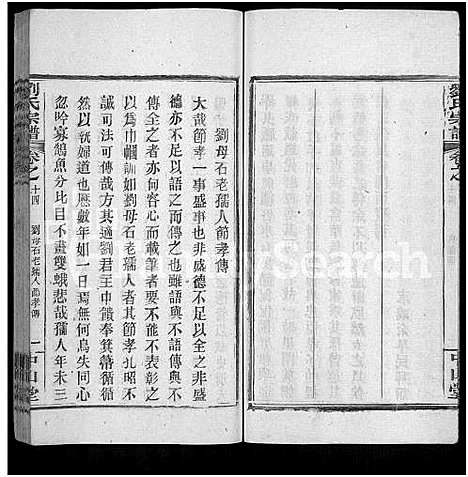 劉氏宗譜
卷之
中山堂
劉母石老孺人節孝傳
大哉節孝一事盛事也非盛德不足以全之非盛
德亦不足以語之而傳之也雖語與不語傳與不
傳全之者亦何容心而載筆者要不能不表彰之
以為巾幗訓如劉母石老孺人者其節孝孔昭不
誠可法可傳哉方其適劉君王申饋奠箕帚循循
然以執婦道也歷數年如一日焉無何鳥失同心
忽吟寡鵠魚分比目不畫雙蛾悲哉孺人年未三
劉氏宗譜
卷之
十四
劉母石老孺人節孝傳
一中山堂